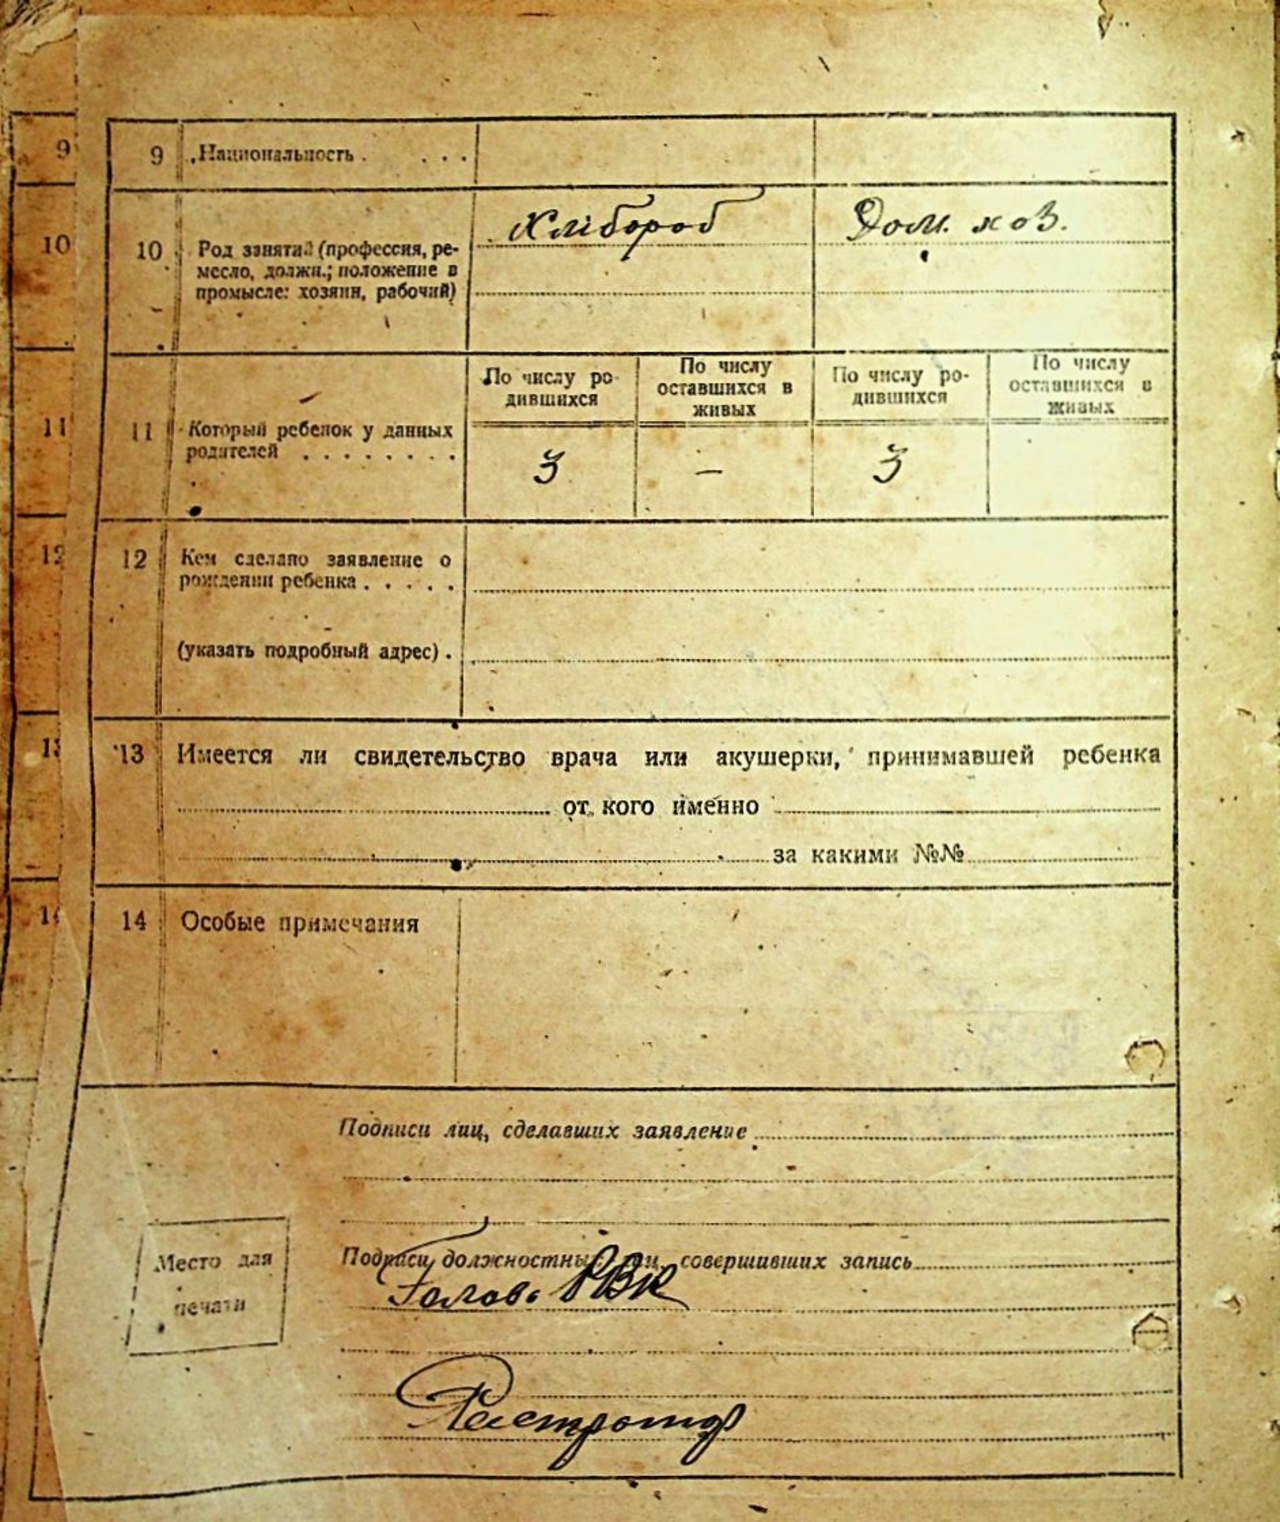 9
9 Национальность . . . .
Хлібороб Дом. хоз.
10
10 Род занятий (профессия, ре-
месло, должн.; положение в
промысле: хозяин, рабочий)
По числу ро-
дившихся
По числу
оставшихся в
живых
По числу ро-
дившихся
По числу
оставшихся в
живых
11
11 Который ребенок у данных
родителей . . . . . . . .
3 – 3
12
12 Кем сделано заявление о
рождении ребенка . . . . .
(указать подробный адрес) .
13
13 Имеется ли свидетельство врача или акушерки, принимавшей ребенка
от кого именно
за какими №№
14
14 Особые примечания
Подписи лиц, сделавших заявление
Место для
печати
Подписи должностных лиц, совершивших запись
Голова РВК
Реєстратор